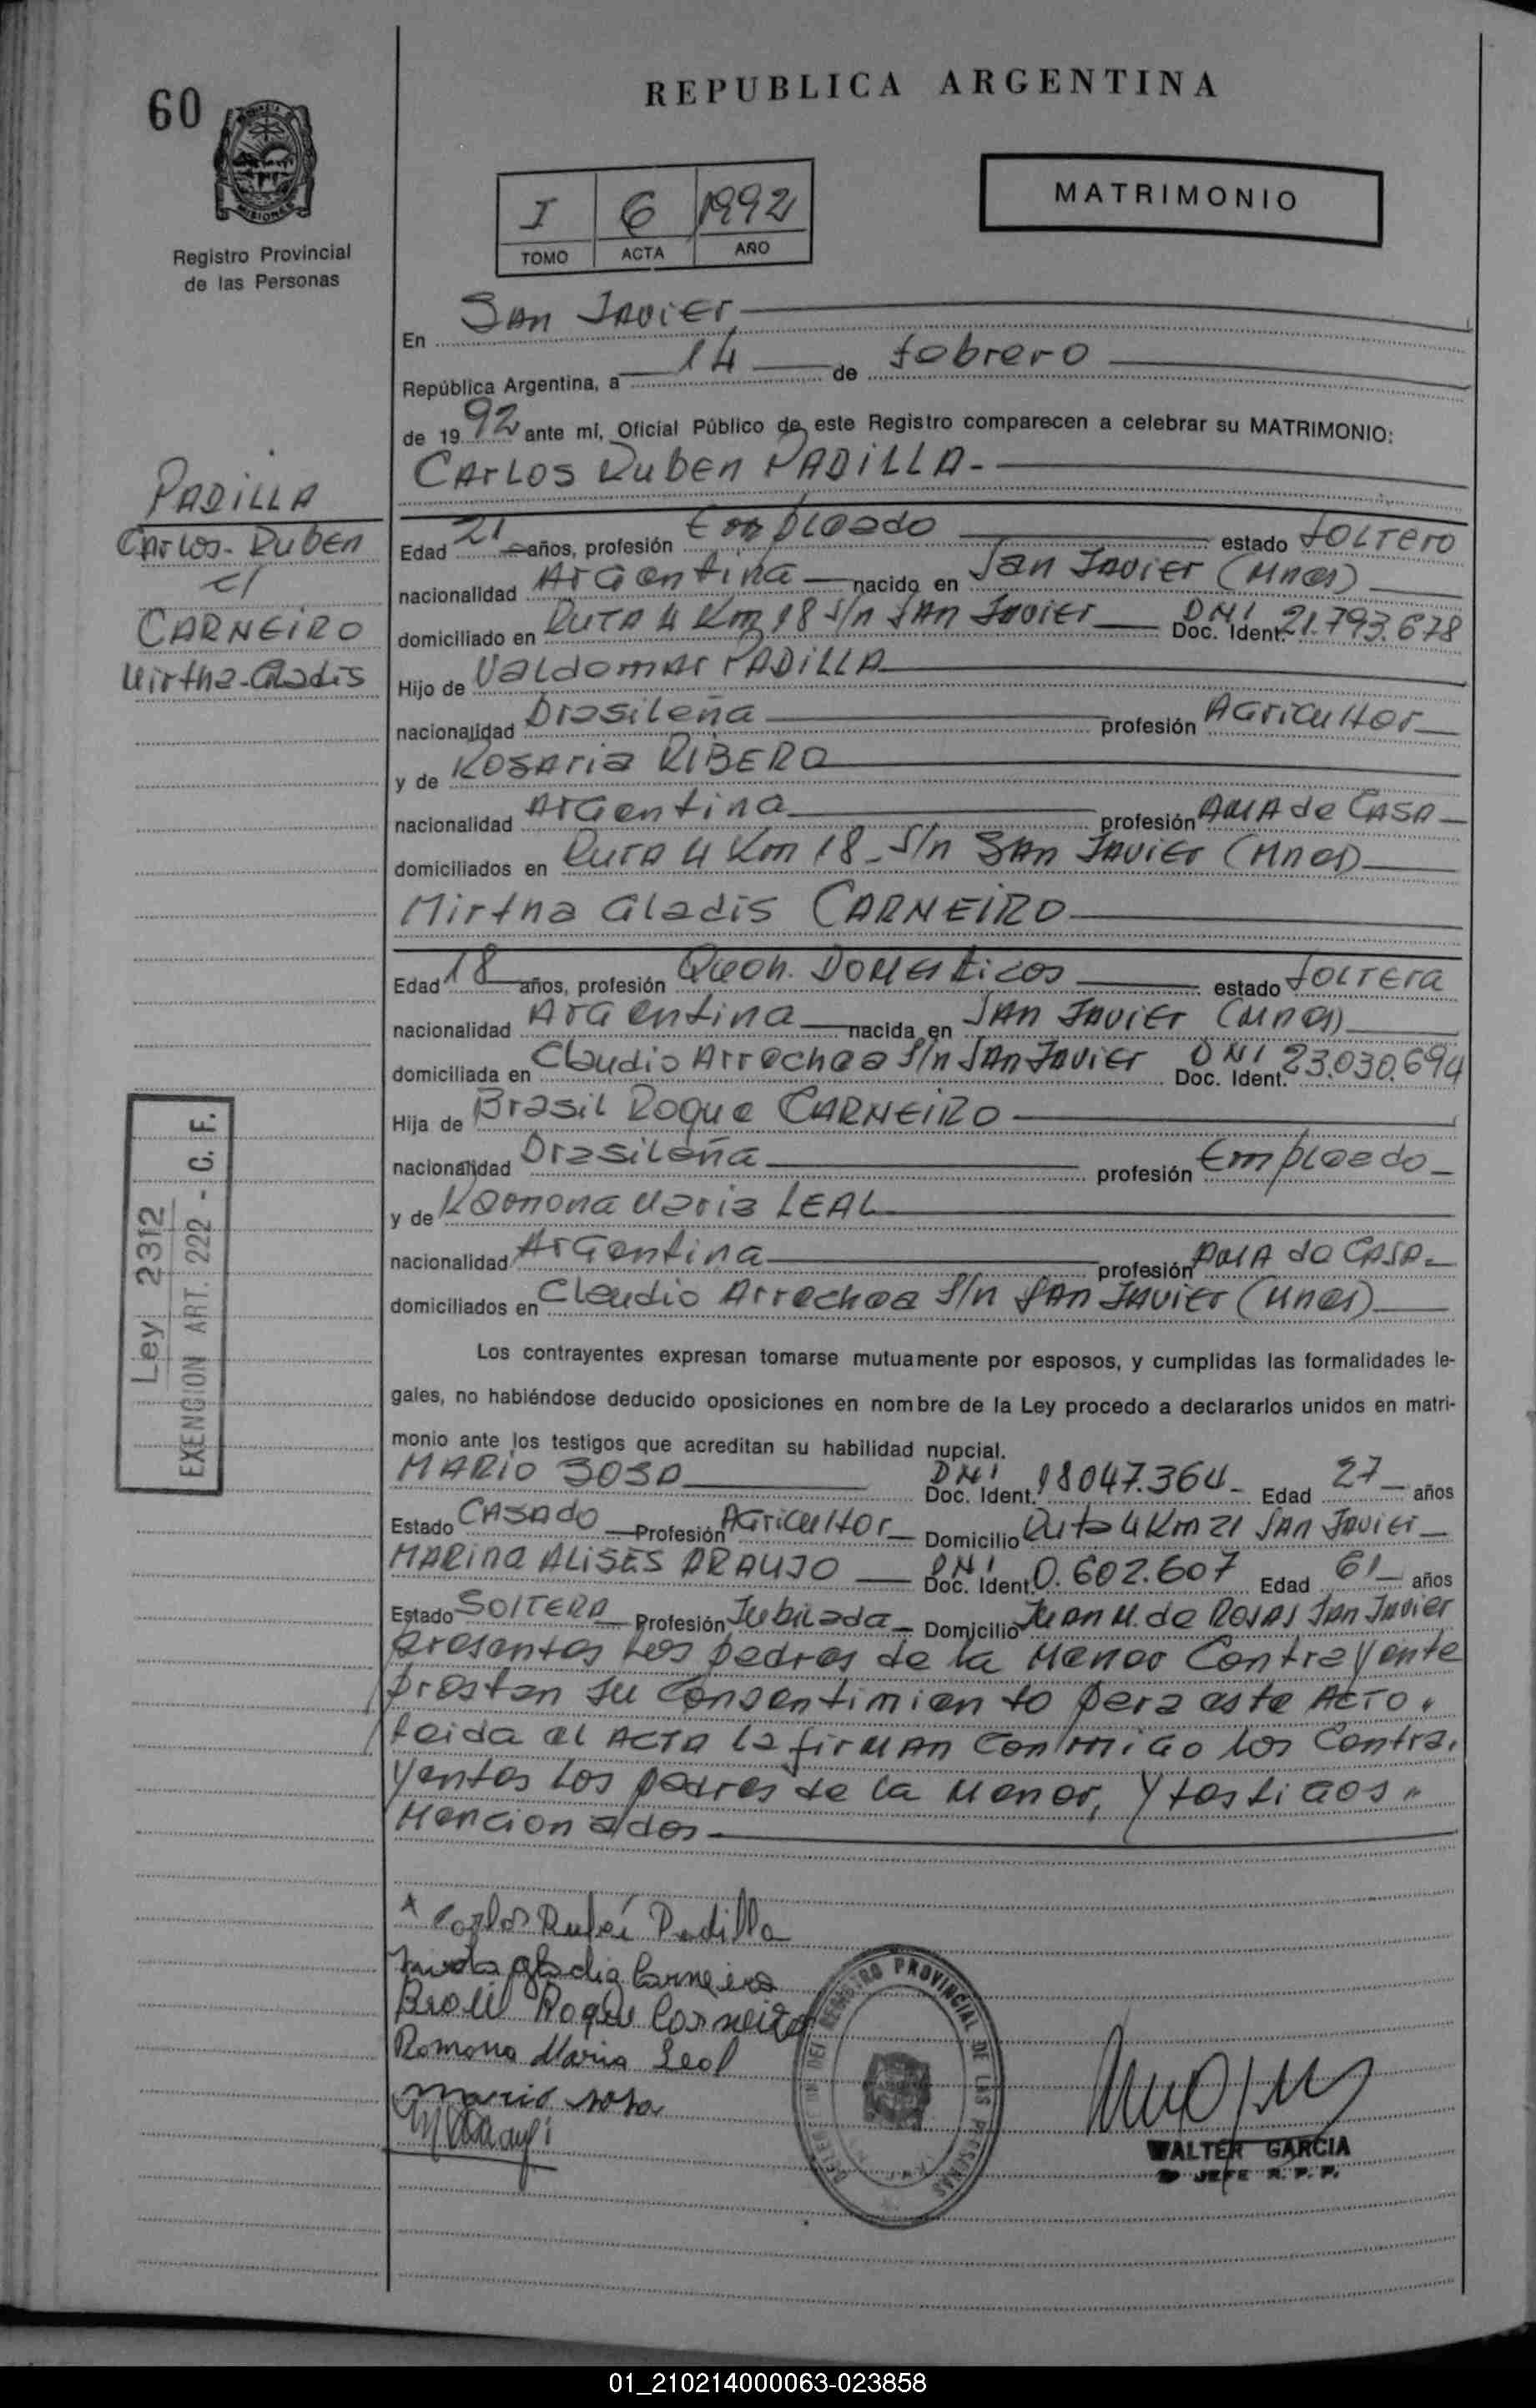 60
REPUBLICA ARGENTINA
MISIONES
Registro Provincial
de las Personas
I 6 1992
TOMO ACTA AÑO
MATRIMONIO
En San Javier
República Argentina, a 14 de febrero
de 1992 ante mí, Oficial Público de este Registro comparecen a celebrar su MATRIMONIO:
Carlos Ruben PADILLA.-
PADILLA
Carlos-Ruben
c/
CARNEIRO
Mirtha-Gladis
Edad 21 años, profesión Empleado estado soltero
nacionalidad Argentina nacido en San Javier (Mnes)
domiciliado en Ruta 4 Km 18 s/n San Javier DNI Doc. Ident. 21.793.678
Hijo de Valdomar PADILLA
nacionalidad Brasileña profesión Agricultor
y de Rosaria RIBERO
nacionalidad Argentina profesión AMA de CASA
domiciliados en Ruta 4 Km 18 - s/n San Javier (Mnes)
Mirtha Gladis CARNEIRO
Edad 18 años, profesión Queh. Domesticos estado soltera
nacionalidad Argentina nacida en San Javier (Mnes)
domiciliada en Claudio Arrechea s/n San Javier DNI Doc. Ident. 23.030.694
Hija de Brasil Roque CARNEIRO
nacionalidad Brasileña profesión Empleado
y de Ramona Maria LEAL
nacionalidad Argentina profesión AMA de CASA
domiciliados en Claudio Arrechea s/n San Javier (Mnes)
Ley 2312
EXENCION ART. 222 - C. F.
Los contrayentes expresan tomarse mutuamente por esposos, y cumplidas las formalidades le-
gales, no habiéndose deducido oposiciones en nombre de la Ley procedo a declararlos unidos en matri-
monio ante los testigos que acreditan su habilidad nupcial.
MARIO SOSA DNI Doc. Ident. 18047.364 Edad 27 años
Estado CASADO Profesión Agricultor Domicilio Ruta 4 Km 21 San Javier
MARINA ALISES ARAUJO DNI Doc. Ident. 0.602.607 Edad 61 años
Estado SOLTERA Profesión Jubilada Domicilio Juan M. de Rosas San Javier
presentes los padres de la menor contrayente
prestan su consentimiento para este Acto.
leida el ACTA la firman conmigo los contra.
yentes los padres de la menor, y testigos
mencionados
Carlos Rubé Padilla
gladis Carneiro
Brasil Roque Carneiro
Romona Maria Leal
mario sosa
REGISTRO PROVINCIAL DE LAS PERSONAS
WALTER GARCIA
JEFE R. P. P.
01_210214000063-023858